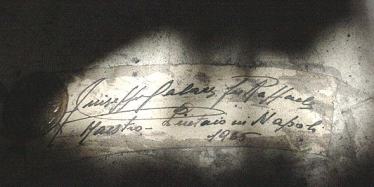 Giuseppe Calace fu Raffaele
Maestro - Liutaio in Napoli
1965